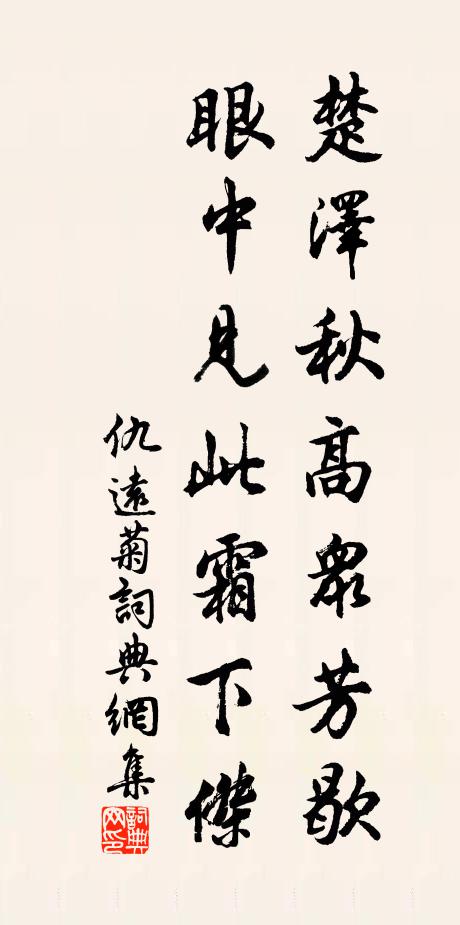 楚澤秋高衆芳歇
眼中見此霜下傑
仇遠菊詞典網集
詞典网印